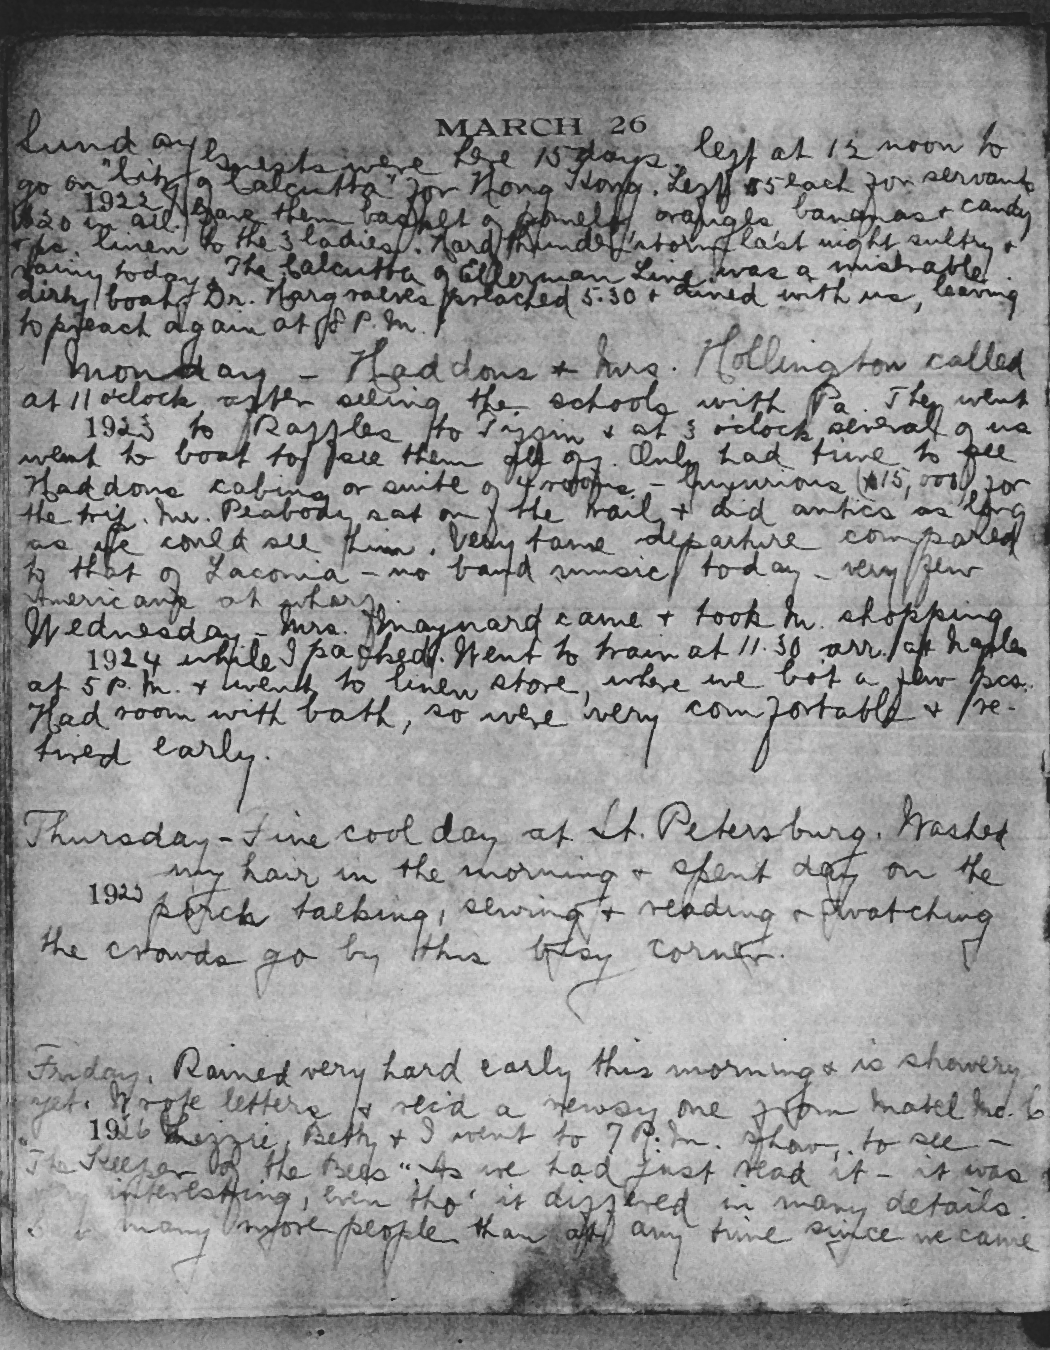 MARCH 26
Sunday Guests were here 15 days, left at 12 noon to
go on "City of Calcutta" for Hong Kong. Left $5 each for servants
1922 $20 in all. Gave them basket of pomelo oranges bananas & candy
& pc. linen to the 3 ladies. Hard thunder storm last night sultry &
rainy today. The Calcutta of Ellerman Line was a miserable
dirty boat. Dr. Hargraves preached 5.30 & dined with us, leaving
to preach again at 8 P.M.
Monday – Haddons & Mrs. Hollington called
at 11 oclock after seeing the schools with Pa. They went
1923 to Raffles to Tiffin & at 3 o'clock several of us
went to boat to see them all off. Only had time to see
Haddons cabins or suite of 4 rooms – luxurious ($15,000) for
the trip. Mr. Peabody sat on the rail & did antics as long
as we could see him. Very tame departure compared
to that of Laconia – no band music today – very few
Americans at wharf.
Wednesday – Mrs. Maynard came & took M. shopping
1924 while I packed. Went to train at 11.30 arr. at Naples
at 5 P.M. & went to linen store, where we bot a few pcs.
Had room with bath, so were very comfortable & re-
tired early.
Thursday – Fine cool day at St. Petersburg. Washed
my hair in the morning & spent day on the
1925 porch talking, sewing & reading & watching
the crowds go by this busy corner.
Friday. Rained very hard early this morning & is showery
yet. Wrote letters & rec'd a newsy one from Mabel Mc.
1926 Lizzie, Betty & I went to 7 P.M. show, to see –
"The Keeper of the Bees". As we had just read it – it was
very interesting, even tho' it differed in many details.
many more people than at any time since we came